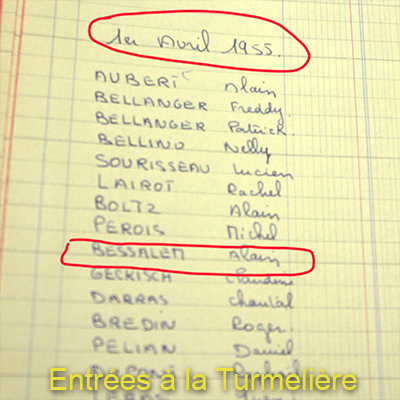 1er Avril 1955.
AUBERT Alain
BELLANGER Freddy.
BELLANGER Patrick.
BELLINO Nelly
SOURISSEAU Lucien
LAIROT Rachel
BOLTZ Alain
PEROIS Michel
BESSALEM Alain
GECKISCH Claudine
DARRAS Chantal
BREDIN Roger.
PELIAN Daniel
Entrées à la Turmelière